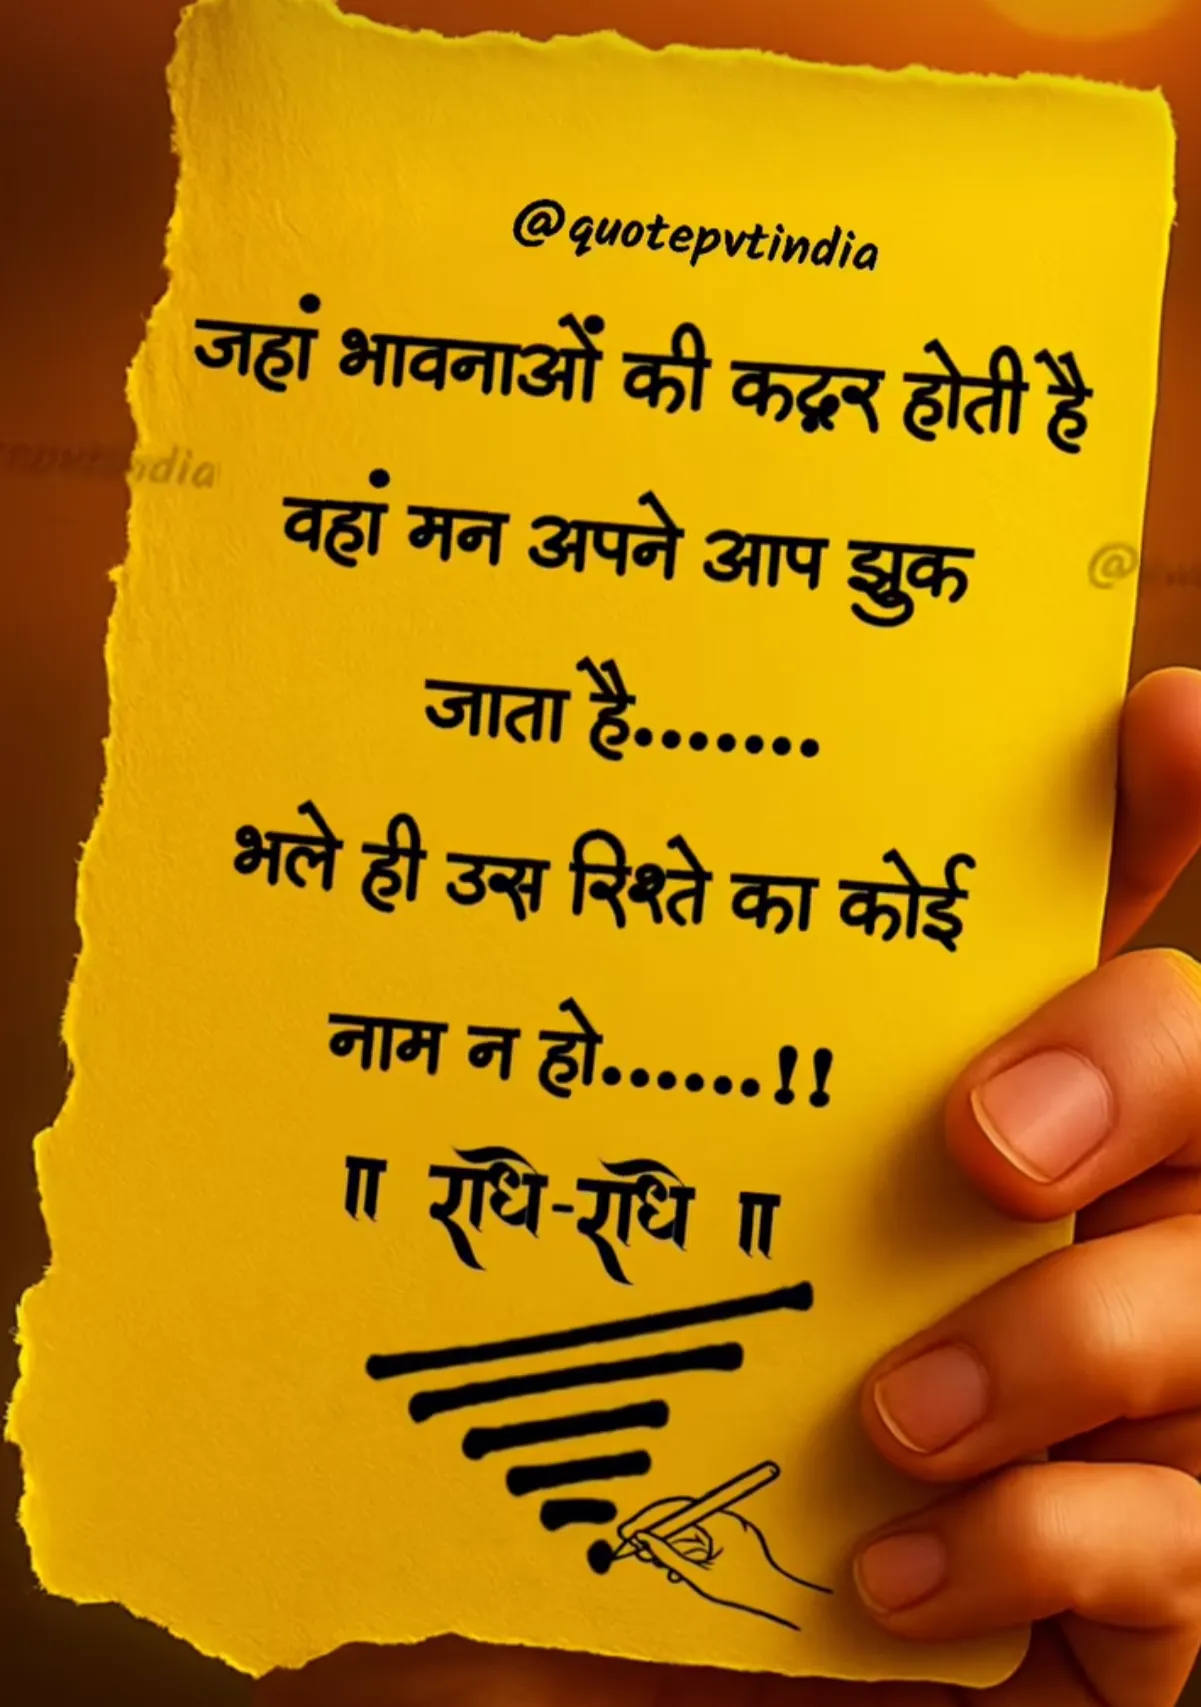 @quotepvtindia
जहां भावनाओं की कद्र होती है
वहां मन अपने आप झुक
जाता है.......
भले ही उस रिश्ते का कोई
नाम न हो......!!
॥ राधे-राधे ॥